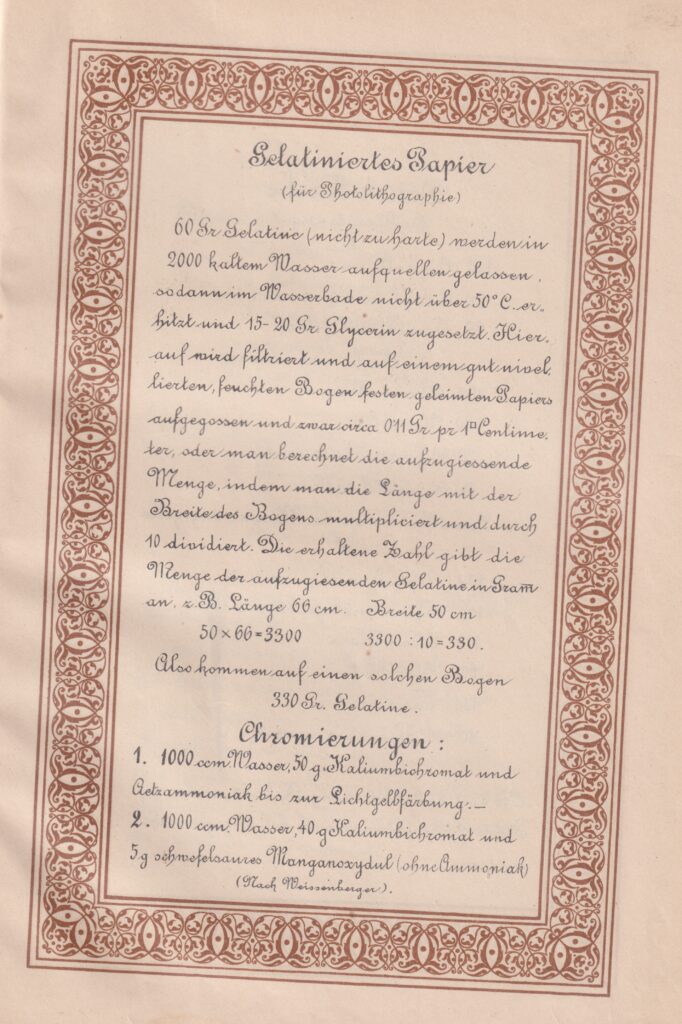 Gelatiniertes Papier
(für Photolithographie)
60 Gr Gelatine (nicht zu harte) werden in
2000 kaltem Wasser aufquellen gelassen,
sodann im Wasserbade nicht über 50° C. er-
hitzt und 15-20 Gr. Glycerin zugesetzt. Hier-
auf wird filtriert und auf einem gut nivel-
lierten, feuchten Bogen festen geleimten Papiers
aufgegossen und zwar circa 011 Gr pr 1□ Centime-
ter, oder man berechnet die aufzugiessende
Menge, indem man die Länge mit der
Breite des Bogens multipliciert und durch
10 dividiert. Die erhaltene Zahl gibt die
Menge der aufzugiesenden Gelatine in Gram̄
an. z. B. Länge 66 cm. Breite 50 cm
50 × 66 = 3300 3300 : 10 = 330.
Also kommen auf einen solchen Bogen
330 Gr. Gelatine.
Chromierungen:
1. 1000 ccm Wasser, 50 g Kaliumbichromat und
Aetzammoniak bis zur Lichtgelbfärbung. —
2. 1000 ccm. Wasser, 40 g Kaliumbichromat und
5 g schwefelsaures Manganoxydul (ohne Ammoniak)
(Nach Weissenberger).